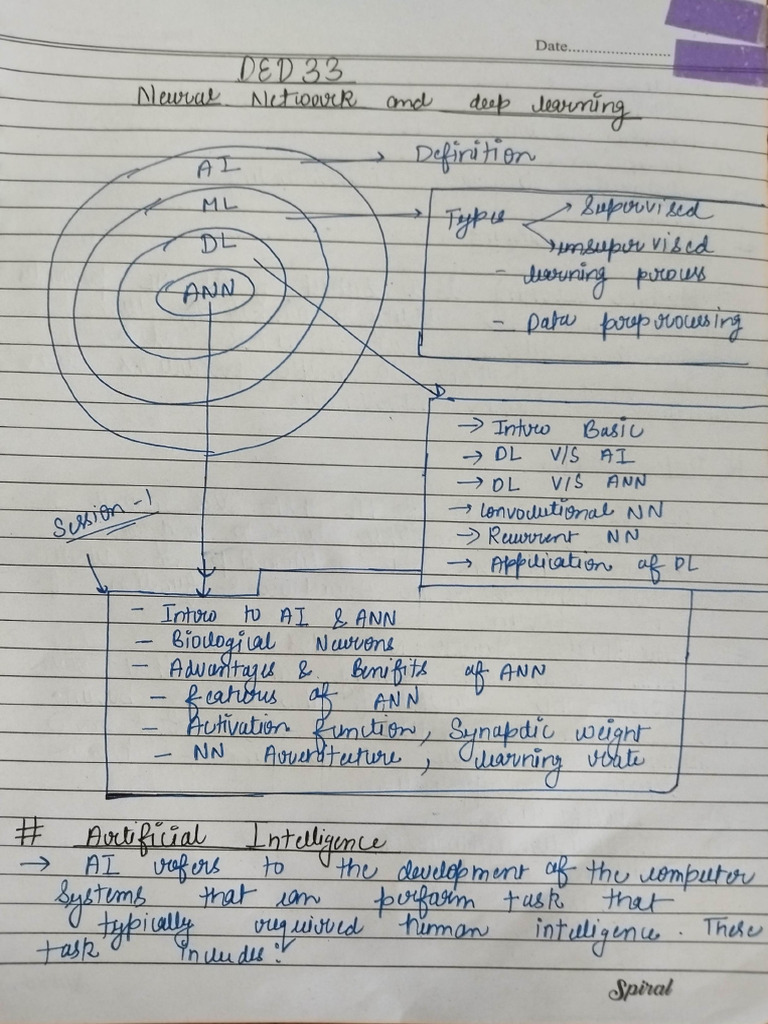 Date....................
DED33
Neural Network and deep learning
AI → Definition
ML
DL
ANN
Types → Supervised
→ unsupervised
- learning process
- Data preprocessing
→ Intro Basic
→ DL V/S AI
→ DL V/S ANN
→ Convolutional NN
→ Recurrent NN
→ Application of DL
Session-1
- Intro to AI & ANN
- Biological Neurons
- Advantages & Benifits of ANN
- features of ANN
- Activation function, Synapdic weight
- NN , learning rate
# Artificial Intelligence
→ AI refers to the development of the computer
Systems that can perform task that
typically required human intelligence. These
task includes:
Spiral